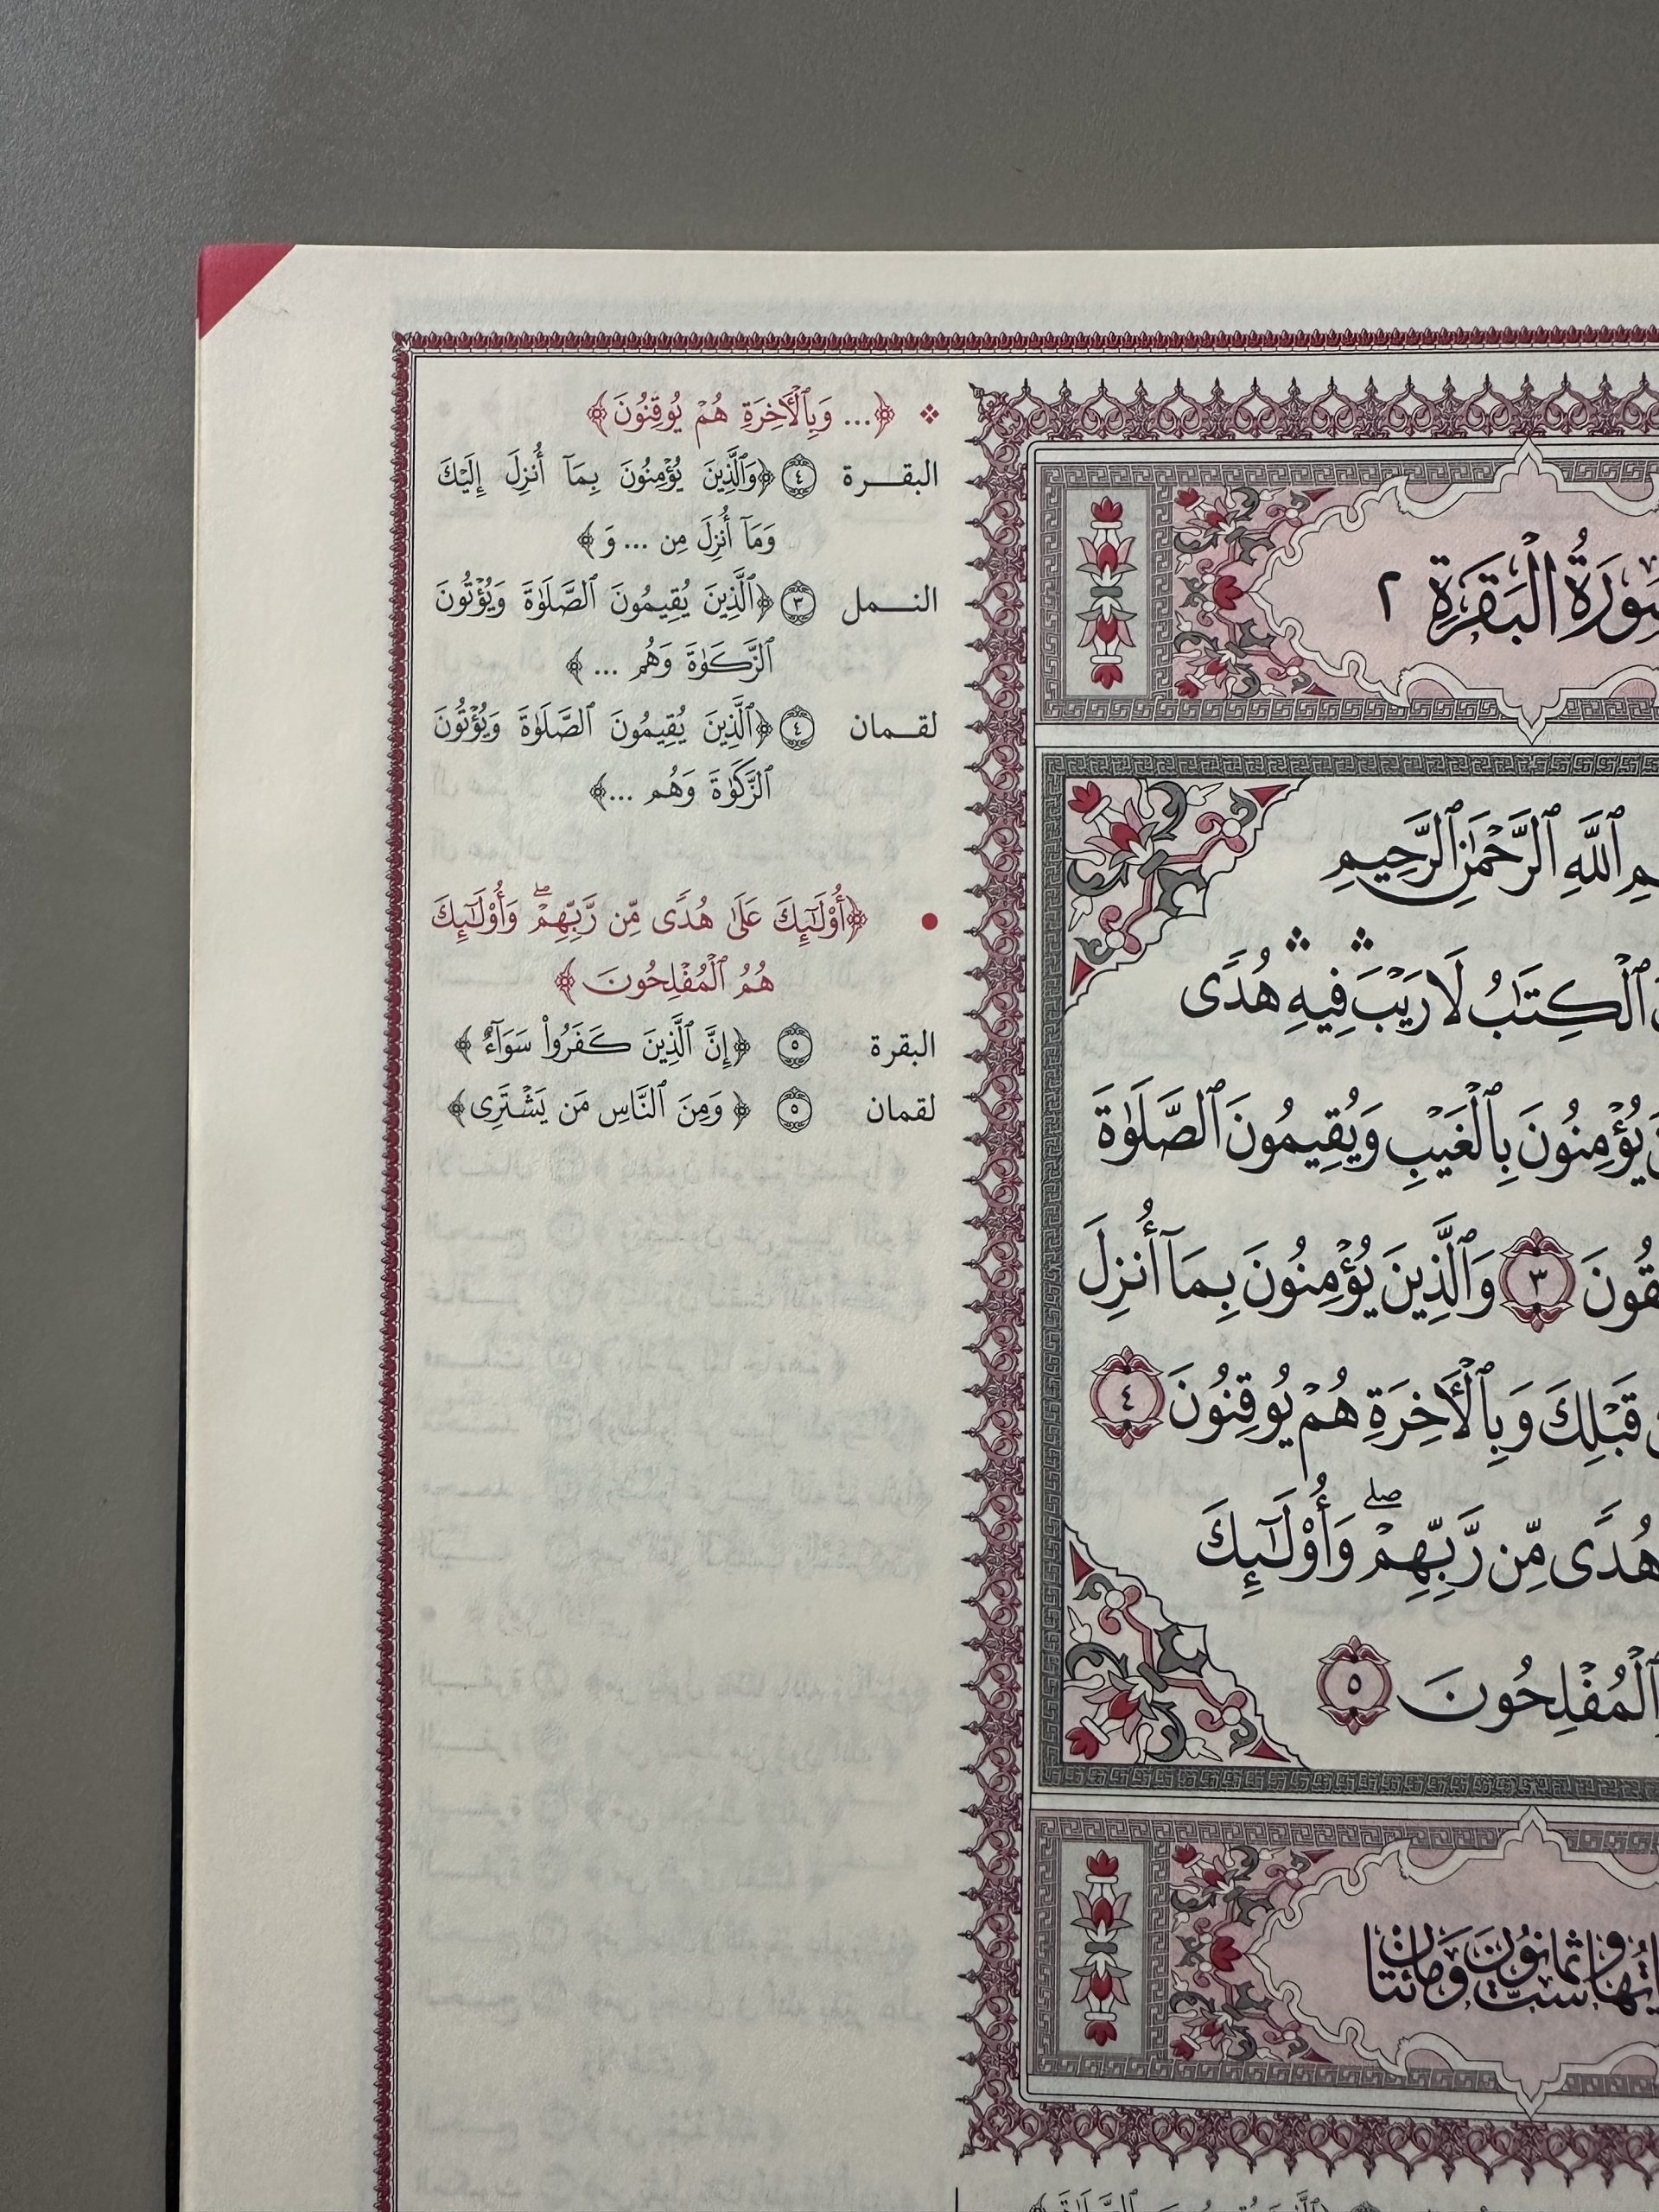 ❖ ﴿... وَبِٱلْأَخِرَةِ هُمْ يُوقِنُونَ﴾
البقرة ٤ ﴿وَٱلَّذِينَ يُؤْمِنُونَ بِمَآ أُنزِلَ إِلَيْكَ
وَمَآ أُنزِلَ مِن ... وَ ﴾
النمل ٣ ﴿ٱلَّذِينَ يُقِيمُونَ ٱلصَّلَوٰةَ وَيُؤْتُونَ
ٱلزَّكَوٰةَ وَهُم ... ﴾
لقمان ٤ ﴿ٱلَّذِينَ يُقِيمُونَ ٱلصَّلَوٰةَ وَيُؤْتُونَ
ٱلزَّكَوٰةَ وَهُم ...﴾
• ﴿أُوْلَـٰٓئِكَ عَلَىٰ هُدًى مِّن رَّبِّهِمْ ۖ وَأُوْلَـٰٓئِكَ
هُمُ ٱلْمُفْلِحُونَ ﴾
البقرة ٥ ﴿إِنَّ ٱلَّذِينَ كَفَرُوا۟ سَوَآءٌ ﴾
لقمان ٥ ﴿ وَمِنَ ٱلنَّاسِ مَن يَشْتَرِى﴾
سُورَةُ البَقَرَةِ ٢
ٱللَّهِ ٱلرَّحْمَٰنِ ٱلرَّحِيمِ
ٱلْكِتَٰبُ لَا رَيْبَ ۛ فِيهِ ۛ هُدًى
يُؤْمِنُونَ بِٱلْغَيْبِ وَيُقِيمُونَ ٱلصَّلَوٰةَ
٣ وَٱلَّذِينَ يُؤْمِنُونَ بِمَآ أُنزِلَ
قَبْلِكَ وَبِٱلْأَخِرَةِ هُمْ يُوقِنُونَ ٤
هُدًى مِّن رَّبِّهِمْ ۖ وَأُوْلَـٰٓئِكَ
ٱلْمُفْلِحُونَ ٥
ست وثمانون ومائتان